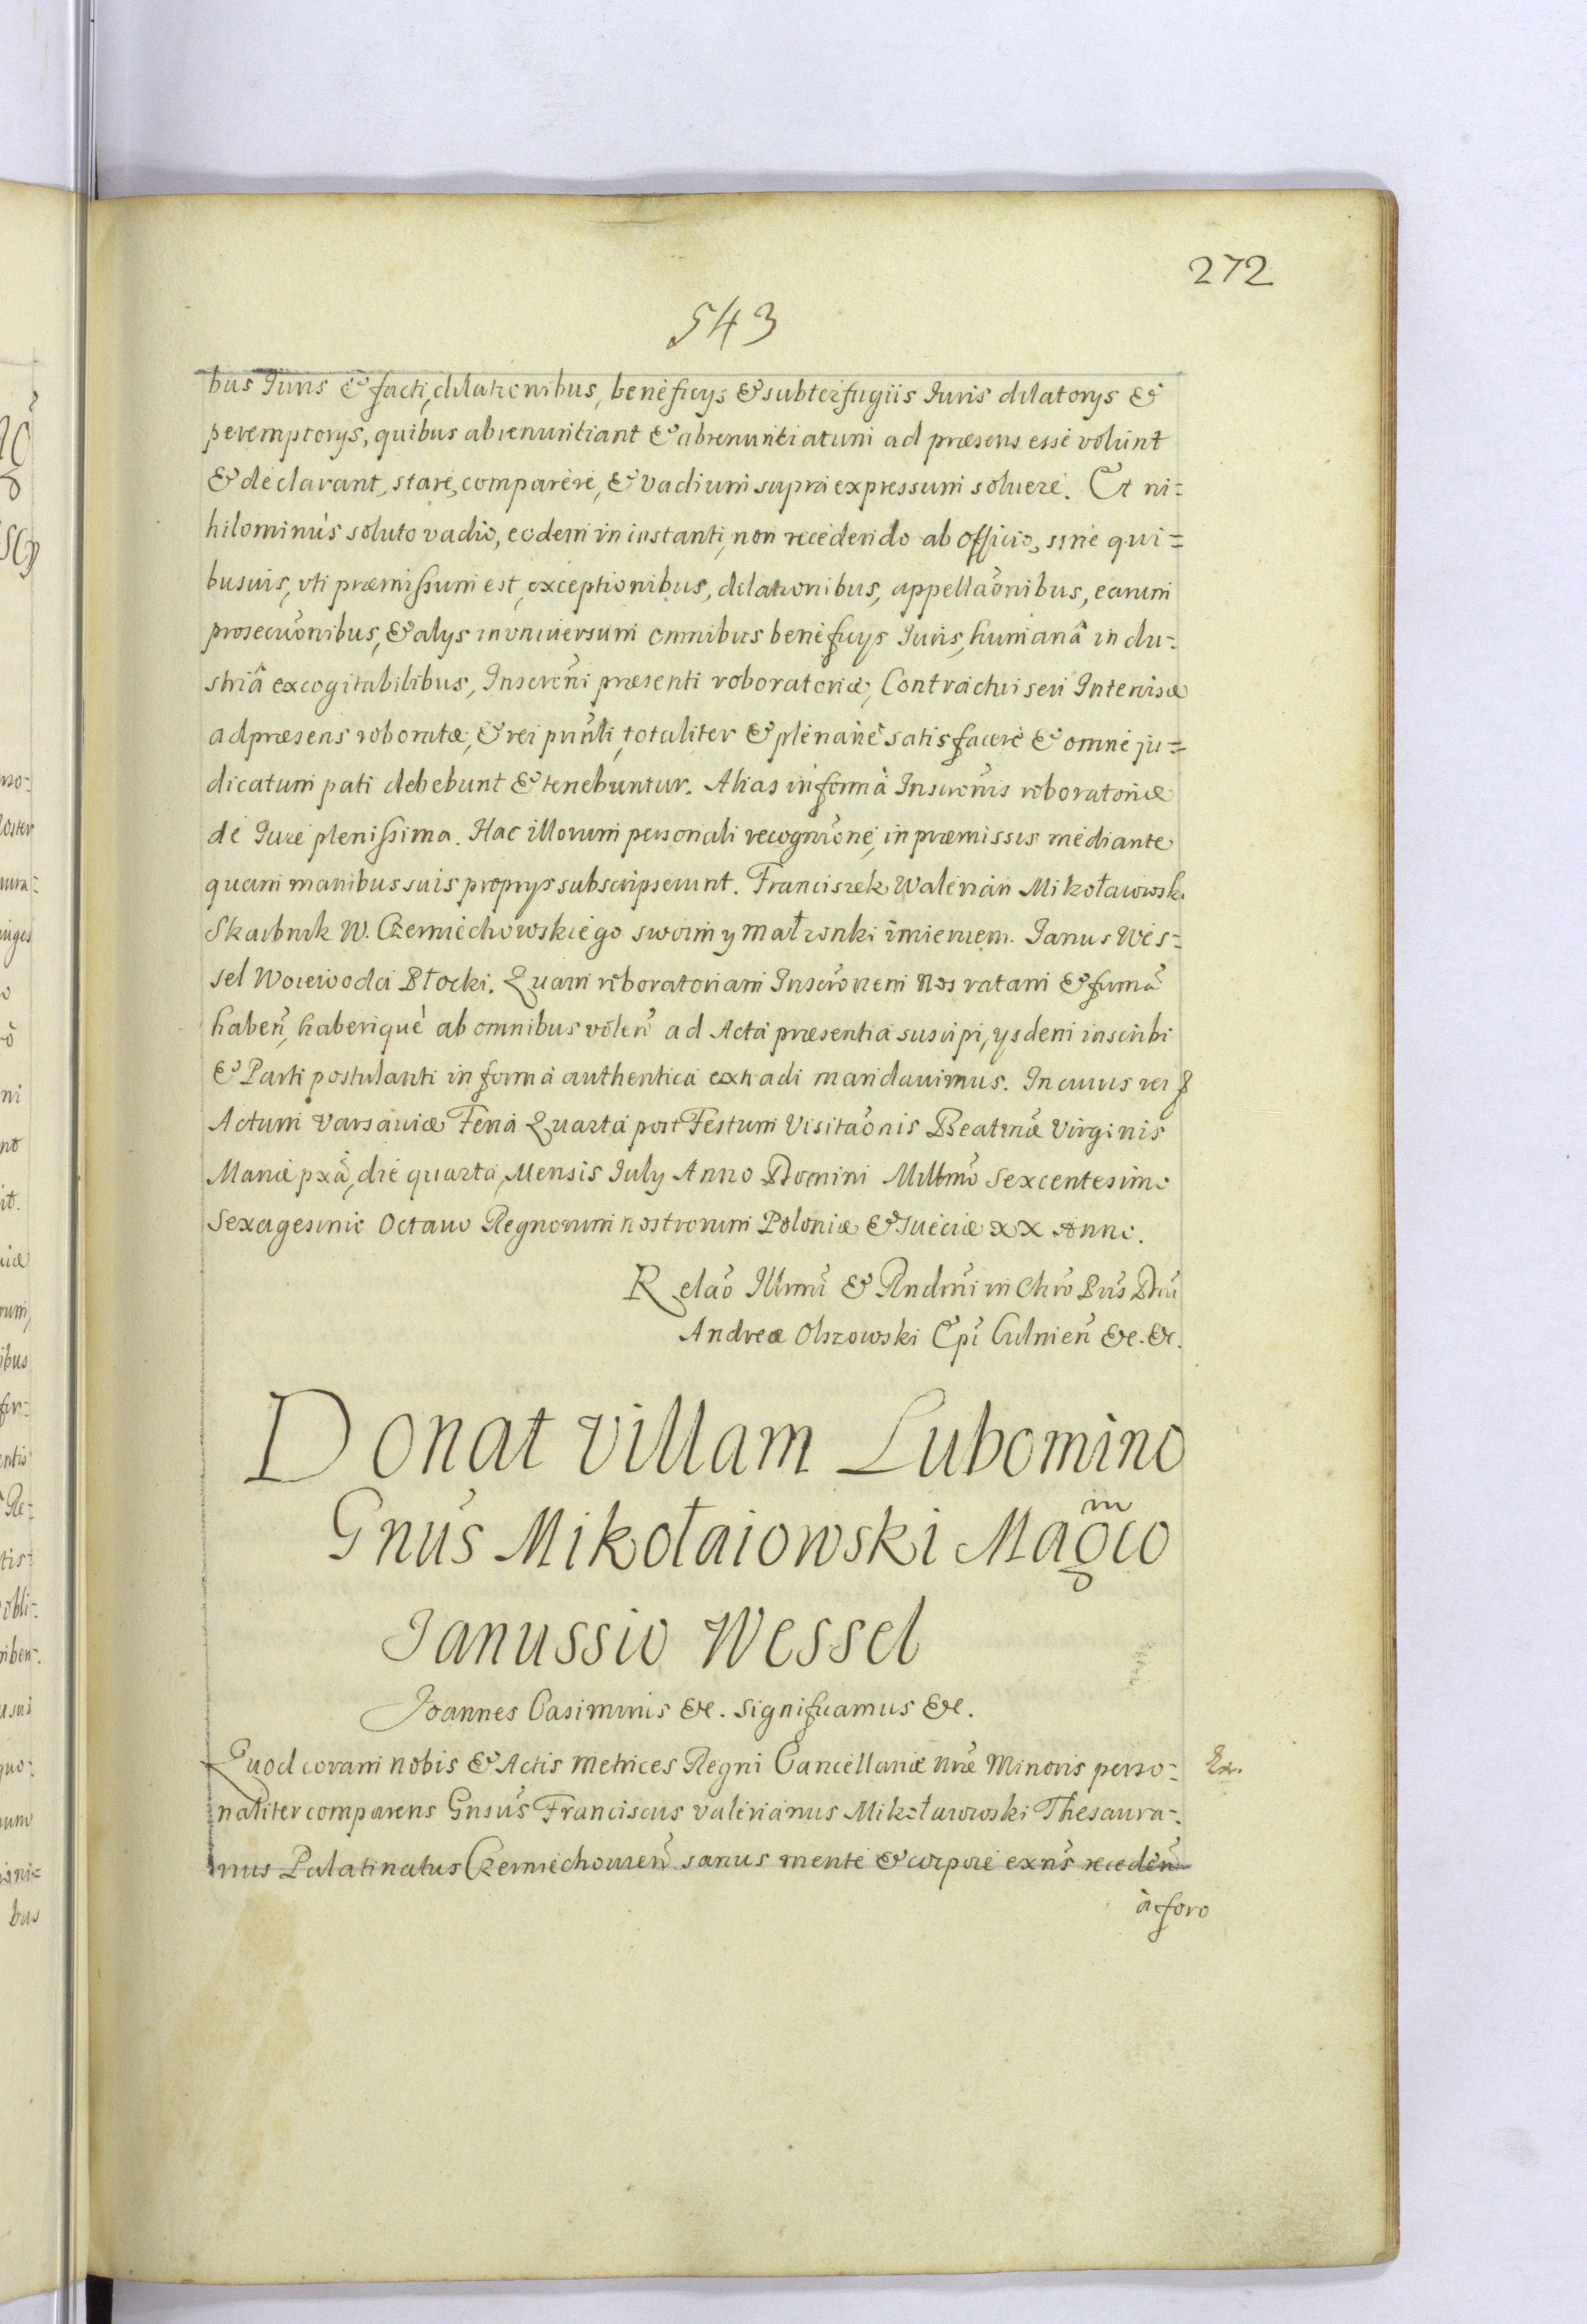 272
543
bus Iuris & facti, dilationibus, beneficys & subterfugiis Iuris dilatorys &
peremptorys, quibus abrenuntiant & abrenuntiatum ad præsens esse volunt
& declarant, stare, comparere, & vadium supra expressum soluere. Et ni=
hilominùs soluto vadio, eodem in instanti, non recedendo ab officio, sine qui=
busuis, vti præmissum est, exceptionibus, dilationibus, appellaõnibus, earum
prosecuõnibus, & alys in vniuersum omnibus beneficys Iuris, humanâ indu=
striâ excogitabilibus, Inscrõni præsenti roboratoriæ, Contractui seu Intercisæ
ad præsens roboratæ, & rei pñnti, totaliter & plenariè satisfacere & omne ju=
dicatum pati debebunt & tenebuntur. Alias in forma Inscrõnis roboratoriæ
de Iure plenissima. Hac illorum personali recogniõne, in præmissis mediante
quam manibus suis proprys subscripserunt. Franciszek Waleria͂n Mikołaiowsk.
Skarbnik W. Czerniechowskiego swoim y małżonki imieniem. Ianus Wes=
sel Woiewoda Płocki. Quam roboratoriam Inscrõnem Nos ratam & firmã
habeñ, haberique ab omnibus voleñ ad Acta præsentia suscipi, ysdem inscribi
& Parti postulanti in forma authentica extradi mandauimus. In cuius rei
Actum Varsauiæ Feria Quarta post Festum Visitaõnis Beatmæ Virginis
Mariæ pxã, die quarta, Mensis Iuly Anno Domini Millmõ Sexcentesimo
Sexagesimo Octauo Regnorum nostrorum Poloniæ & Sueciæ xx Anno.
Relaõ Illmi & Rndmi in Chrõ Pris Dni
Andreæ Olszowski Epi Culmeñ &c. &c.
Donat villam Lubomino
Gnus Mikołaiowski Magco
Ianussio Wessel
Joannes Casimirus &c. Significamus &c.
Quod coram nobis & Actis Metrices Regni Cancellariæ nræ Minoris perso=
naliter comparens Gnsus Franciscus Valerianus Mikołaiowski Thesaura=
rius Palatinatus Czerniechouień sanus mente & corpore exñs recedeñ
à foro